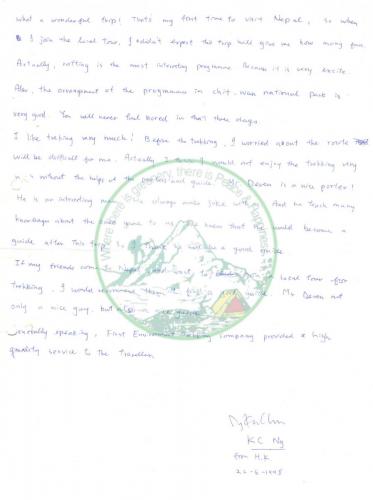 what a wonderful trip! Thats my first time to visit Nepal, so when
I join the local tour, I didn't expect this trip will give me how many fun.
Actually, rafting is the most interesting programme. Because it is very excite.
Also, the arrangement of the programme in chit-wan national park is
very good. You will never feel bored in that three days.
I like trekking very much! Before the trekking, I worried about the route
will be difficult for me. Actually I I would not enjoy the trekking very
much without the helps of the and guide. Deven is a nice porter!
He is an interesting man. always make joke with And he teach many
knowledge about the to us. know that he will become a
guide after this trip. I think he will be a good guide.
If my friends come to Nepal and want to join local tour for
trekking, I would recommend them guide. Mr Deven not
only a nice guy, but
Generally speaking, First Environment Trekking company provided a high
quality service to the traveller.
Where there is greenery, there is Peace & Happiness
KC Ng
from H.K